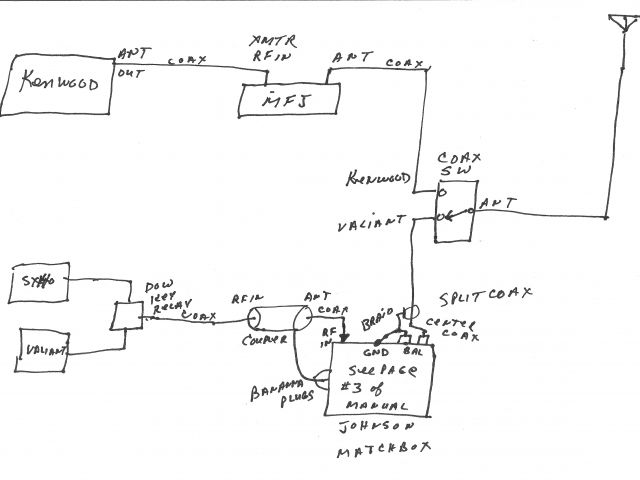 XMTR
ANT
RF IN
ANT
COAX
OUT
COAX
KENWOOD
MFJ
COAX
SW
KENWOOD
ANT
VALIANT
DOW
KEY
RELAY
COAX
RF IN
ANT
COAX
COUPLER
VALIANT
BRAID
SPLIT COAX
CENTER
COAX
RF
IN
GND
BAL
SEE PAGE
#3 of
MANUAL
BANANA
PLUGS
JOHNSON
MATCHBOX